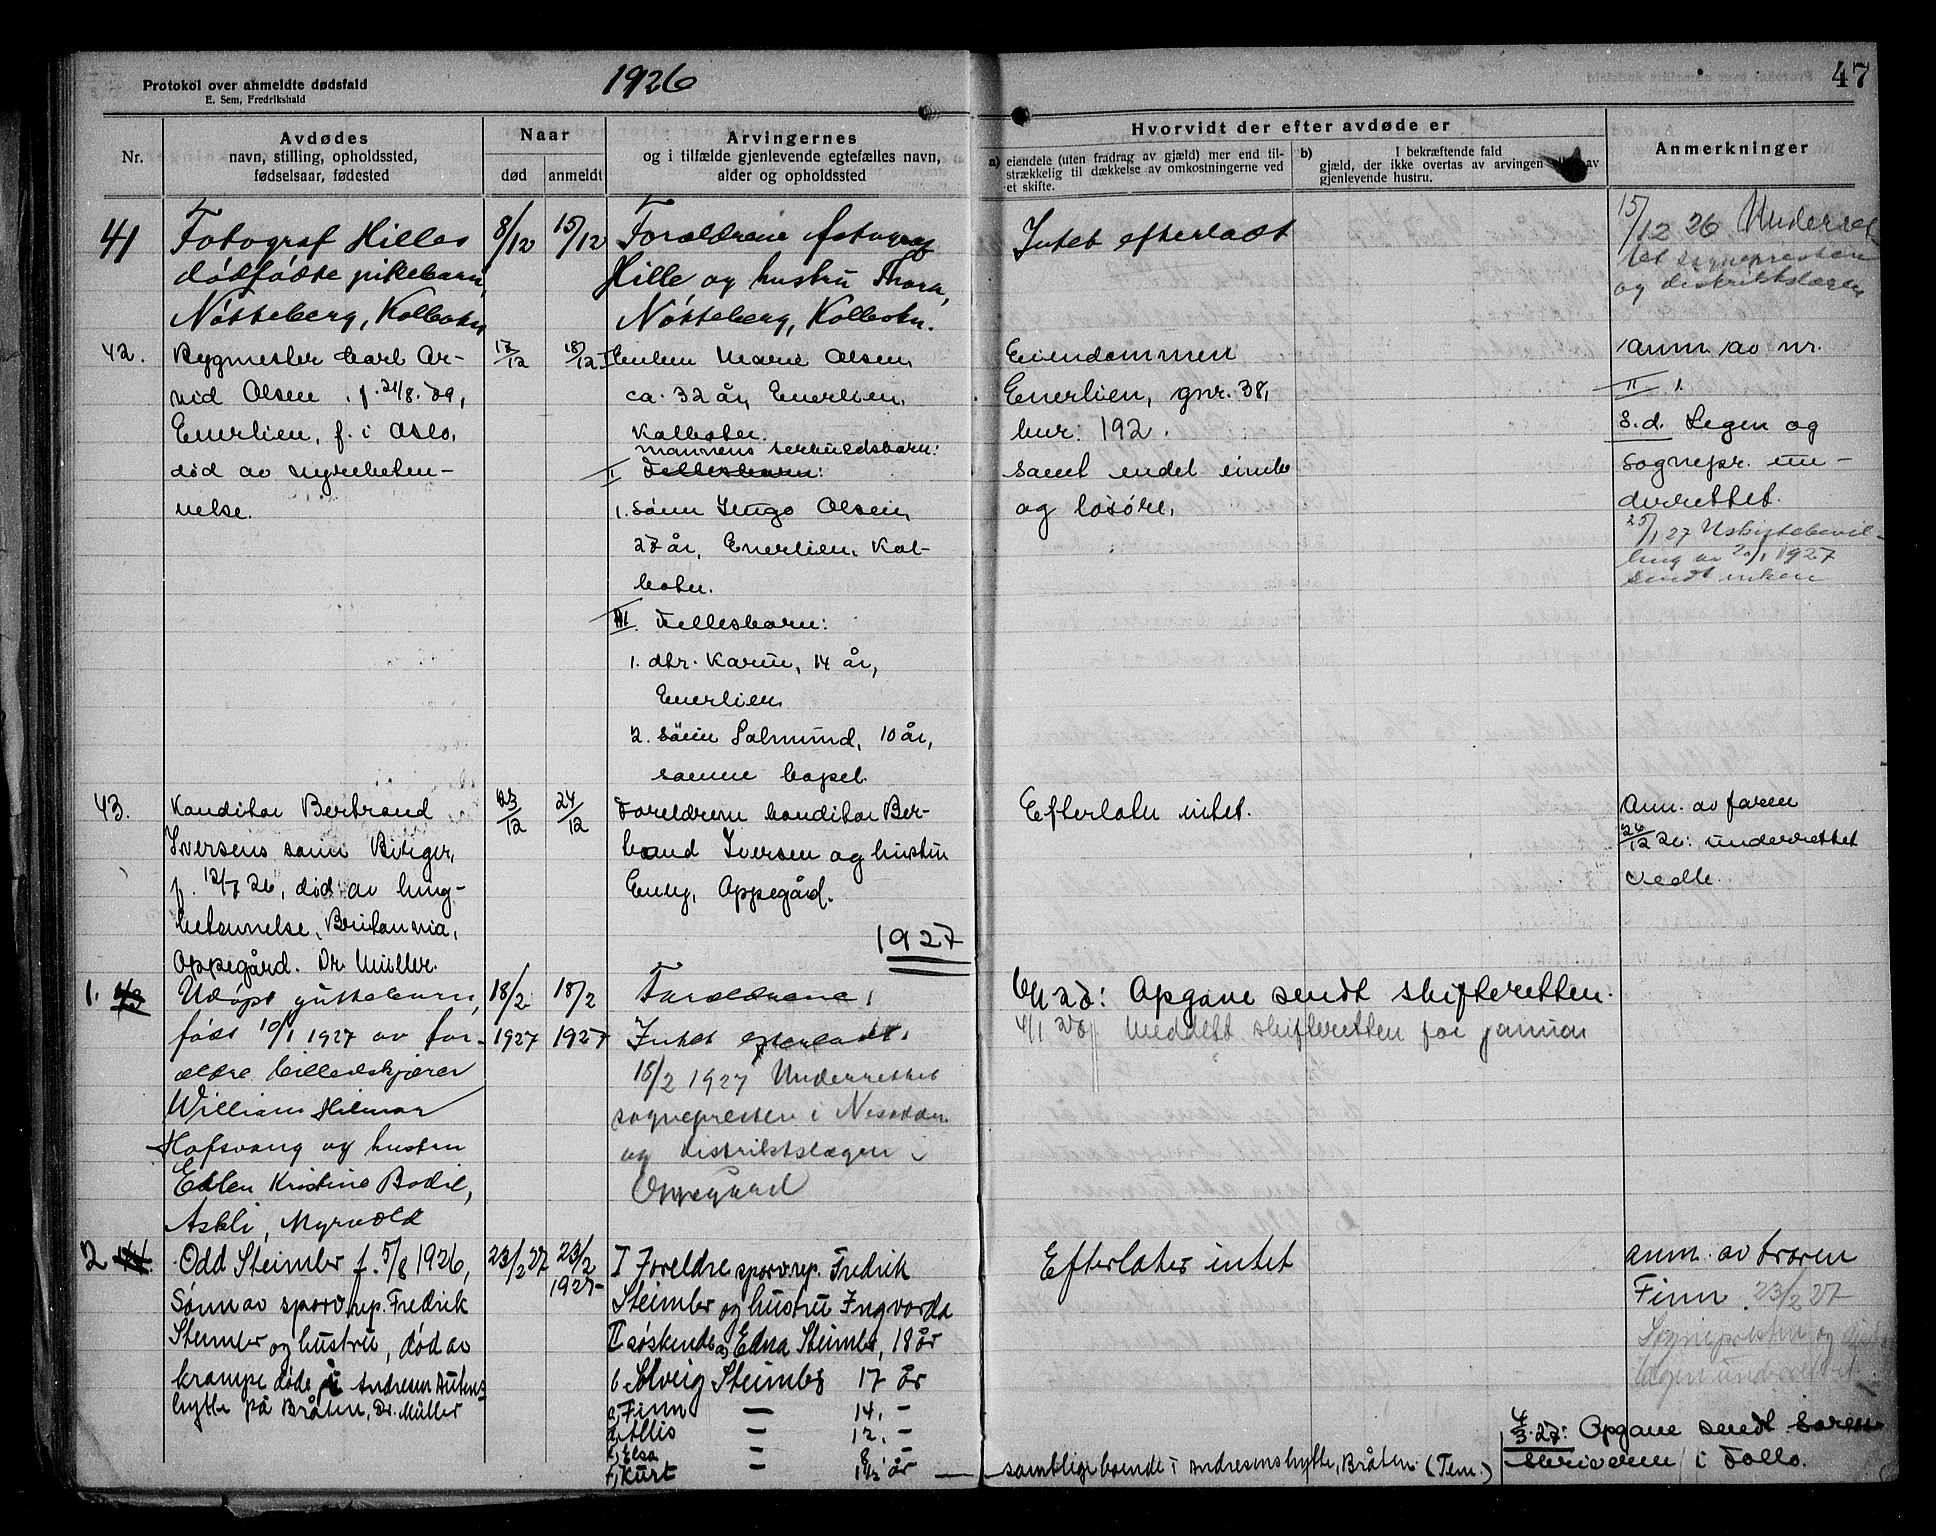 Protokol over anmeldte dødsfald
E. Sem, Fredrikshald
1926
47
Nr.
Avdødes
navn, stilling, opholdssted,
fødselsaar, fødested
Naar
død
anmeldt
Arvingernes
og i tilfælde gjenlevende egtefælles navn,
alder og opholdssted
Hvorvidt der efter avdøde er
a) eiendele (uten fradrag av gjæld) mer end til-
strækkelig til dækkelse av omkostningerne ved
et skifte.
b) I bekræftende fald
gjæld, der ikke overtas av arvingen av
gjenlevende hustru.
Anmerkninger
41
Fotograf Hilles
dødfødte pikebarn,
Nøtteberg, Kolbotn
8/12
15/12
Forældrene fotograf
Hille og hustru Thora,
Nøtteberg, Kolbotn.
Intet efterladt
15/12 26 Underret-
tet sognepresten
og distriktslægen
42.
Bygmester Carl Ar-
vid Olsen, f. 21/8. 89,
Enerlien, f. i Oslo,
død av nyrebeten-
nelse.
17/12
18/12
I Enken Marie Olsen,
ca. 32 år, Enerlien,
Kolboten.
mannens særkuldsbarn:
II Fellesbarn:
1. sønn Ingo Olsen,
27 år, Enerlien, Kol-
boten.
III. Fellesbarn:
1. dtr. Karin, 14 år,
Enerlien
2. sønn Salmund, 10 år,
samme bopel.
Eiendommen
Enerlien, gnr. 38,
bnr. 192.
samt endel innbo
og løsøre.
anm. av nr.
II 1.
S.d. Legen og
sognepr. un-
derrettet.
25/1 27 Uskiftebevil-
ling av 20/1 1927
sendt enken
43.
Konditor Bertrand
Iversens sønn Birger,
f. 12/7 26, død av lung-
betennelse, Britannia,
Oppegård. Dr. Müller.
23/12
24/12
Foreldrene konditor Ber-
trand Iversen og hustru
Emly, Oppegård.
Efterlater intet.
Anm. av faren
26/12 26: underrettet
vedk.
1927
1. 43
Udøpt guttebarn,
født 10/1 1927 av for-
ældre billedskjærer
William Hilmar
Hofsvang og hustru
Ellen Kristine Bodil,
Askli, Myrvold
18/2
1927
18/2
1927
Forældrene,
Intet efterladt.
18/2 1927 Underrettet
sognepresten i Nesodden
og distriktslægen i
Oppegaard
6/1 28: Opgave sendt skifteretten.
4/1 28 Meddelt skifteretten for januar
2 44
Odd Steimler f. 5/8 1926,
Sønn av sporv.rep. Fredrik
Steimler og hustru, død av
krampe døde i Andresen
hytte på Bråten, Dr. Müller
23/2 27
23/2
1927-
I Foreldre sporv.rep. Fredrik
Steimler og hustru Ingvarda
II søskende a, Edna Steimler, 18 år
b Solveig Steimler 17 år
c, Finn — 14. -
d, Allis — 12. -
e, Elsa — 8 -
f, Kurt — 1 1/2 år
Efterlater intet
samtlige boende i Andresens hytte, Bråten. (Tem.)
anm. av broren
Finn. 23/2 27
Sognepresten og
lægen underrettet.
4/3. 27: Opgave sendt soren-
skriveren i Follo.